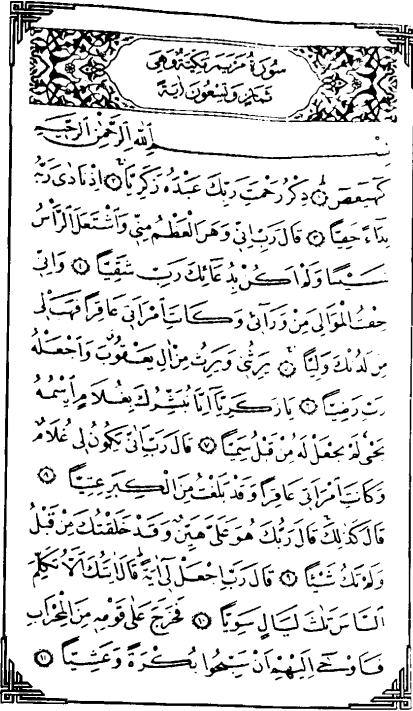 سورة مريم مكية وهى
ثمان وتسعون اية
بسم الله الرحمن الرحيم
كهيعص ١ ذكر رحمت ربك عبده زكريا ٢ اذ نادى ربه
نداء خفيا ٣ قال رب انى وهن العظم منى واشتعل الرأس
شيبا ولم اكن بدعائك رب شقيا ٤ وانى
خفت الموالى من ورائى وكانت امرأتى عاقرا فهب لى
من لدنك وليا ٥ يرثنى ويرث من ال يعقوب واجعله
رب رضيا ٦ يا زكريا انا نبشرك بغلام اسمه
يحيى لم نجعل له من قبل سميا ٧ قال رب انى يكون لى غلام
وكانت امرأتى عاقرا وقد بلغت من الكبر عتيا ٨
قال كذلك قال ربك هو على هين وقد خلقتك من قبل
ولم تك شيئا ٩ قال رب اجعل لى اية قال ايتك الا تكلم
الناس ثلث ليال سويا ١٠ فخرج على قومه من المحراب
فاوحى اليهم ان سبحوا بكرة وعشيا ١١